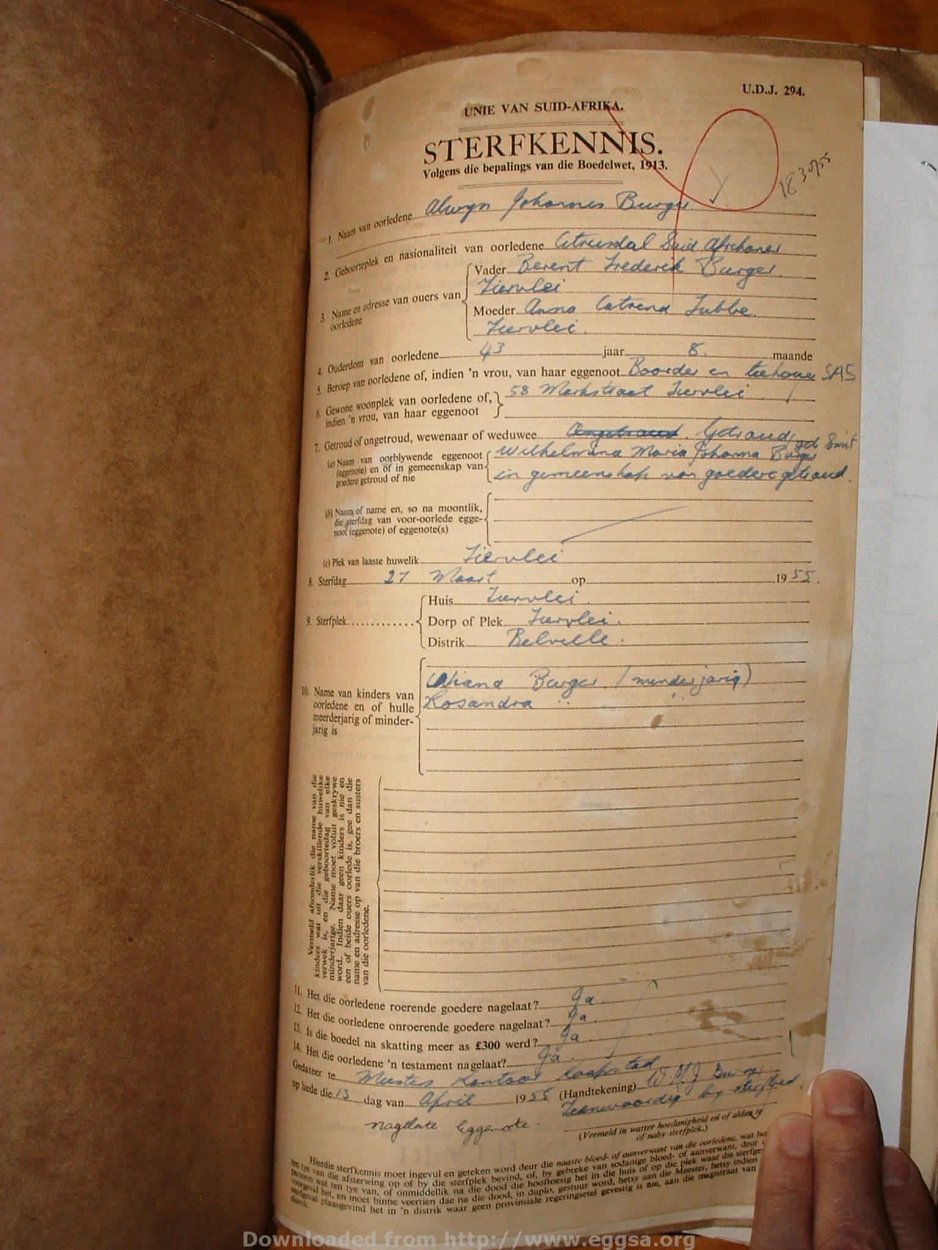 U.D.J. 294.
UNIE VAN SUID-AFRIKA.
STERFKENNIS.
Volgens die bepalings van die Boedelwet, 1913.
1. Naam van oorledene Alwyn Johannes Burger
2. Geboorteplek en nasionaliteit van oorledene Citrusdal Suid Afrikaner
3. Name en adresse van ouers van oorledene
Vader Berent Frederik Burger
Tiervlei
Moeder Anna Catrena Lubbe
Tiervlei
4. Ouderdom van oorledene 43 jaar 8. maande
5. Beroep van oorledene of, indien 'n vrou, van haar eggenoot Boorder en SAS
6. Gewone woonplek van oorledene of, indien 'n vrou, van haar eggenoot
58 Markstraat Tiervlei
7. Getroud of ongetroud, wewenaar of weduwee Ongetroud Getroud
(a) Naam van oorblywende eggenoot (eggenote) en of in gemeenskap van goedere getroud of nie
Wilhelmina Maria Johanna Burger geb Smit
in gemeenskap van goedere getroud.
(b) Naam of name en, so na moontlik, die sterfdag van voor-oorlede eggenoot (eggenote) of eggenote(s)
(c) Plek van laaste huwelik Tiervlei
8. Sterfdag 27 Maart op 1955.
9. Sterfplek
Huis Tiervlei
Dorp of Plek Tiervlei.
Distrik Belville.
10. Name van kinders van oorledene en of hulle meerderjarig of minderjarig is
Burger (minderjarig)
Rosandra " "
Vermeld afsonderlik die name van die kinders wat uit die verskillende huwelike verwek is, en die geboortedag van elke minderjarige. Name moet voluit geskrywe word. Indien daar geen kinders is nie en een of beide ouers oorlede is, gee dan die name en adresse op van die broers en susters van die oorledene.
11. Het die oorledene roerende goedere nagelaat? Ja
12. Het die oorledene onroerende goedere nagelaat? Ja.
13. Is die boedel na skatting meer as £300 werd? Ja
14. Het die oorledene 'n testament nagelaat? Ja
Gedateer te Meesters Kantoor Kaapstad
op hede die 13 dag van April 1955 (Handtekening) W.M.J. Burger
Teenwoordig by sterfbed.
nagelate Eggenote.
(Vermeld in watter hoedanigheid en of aldan by of naby sterfplek.)
Hierdie sterfkennis moet ingevul en geteken word deur die naaste bloed- of aanverwant van die oorledene, wat
ten tye van die afsterwing op of by die sterfplek bevind, of, by gebreke van sodanige bloed- of aanverwant, deur
persoon wat ten tye van, of onmiddellik na die dood die hooftoesig het in die huis of op die plek waar die
voorgeval het, en moet binne veertien dae na die dood, in duplo, gestuur word, hetsy aan die Meester, hetsy indien
sterfgeval plaasgevind het in 'n distrik waar geen provinsiale regeringsetel gevestig is nie, aan die magistraat van
Downloaded from http://www.eggsa.org